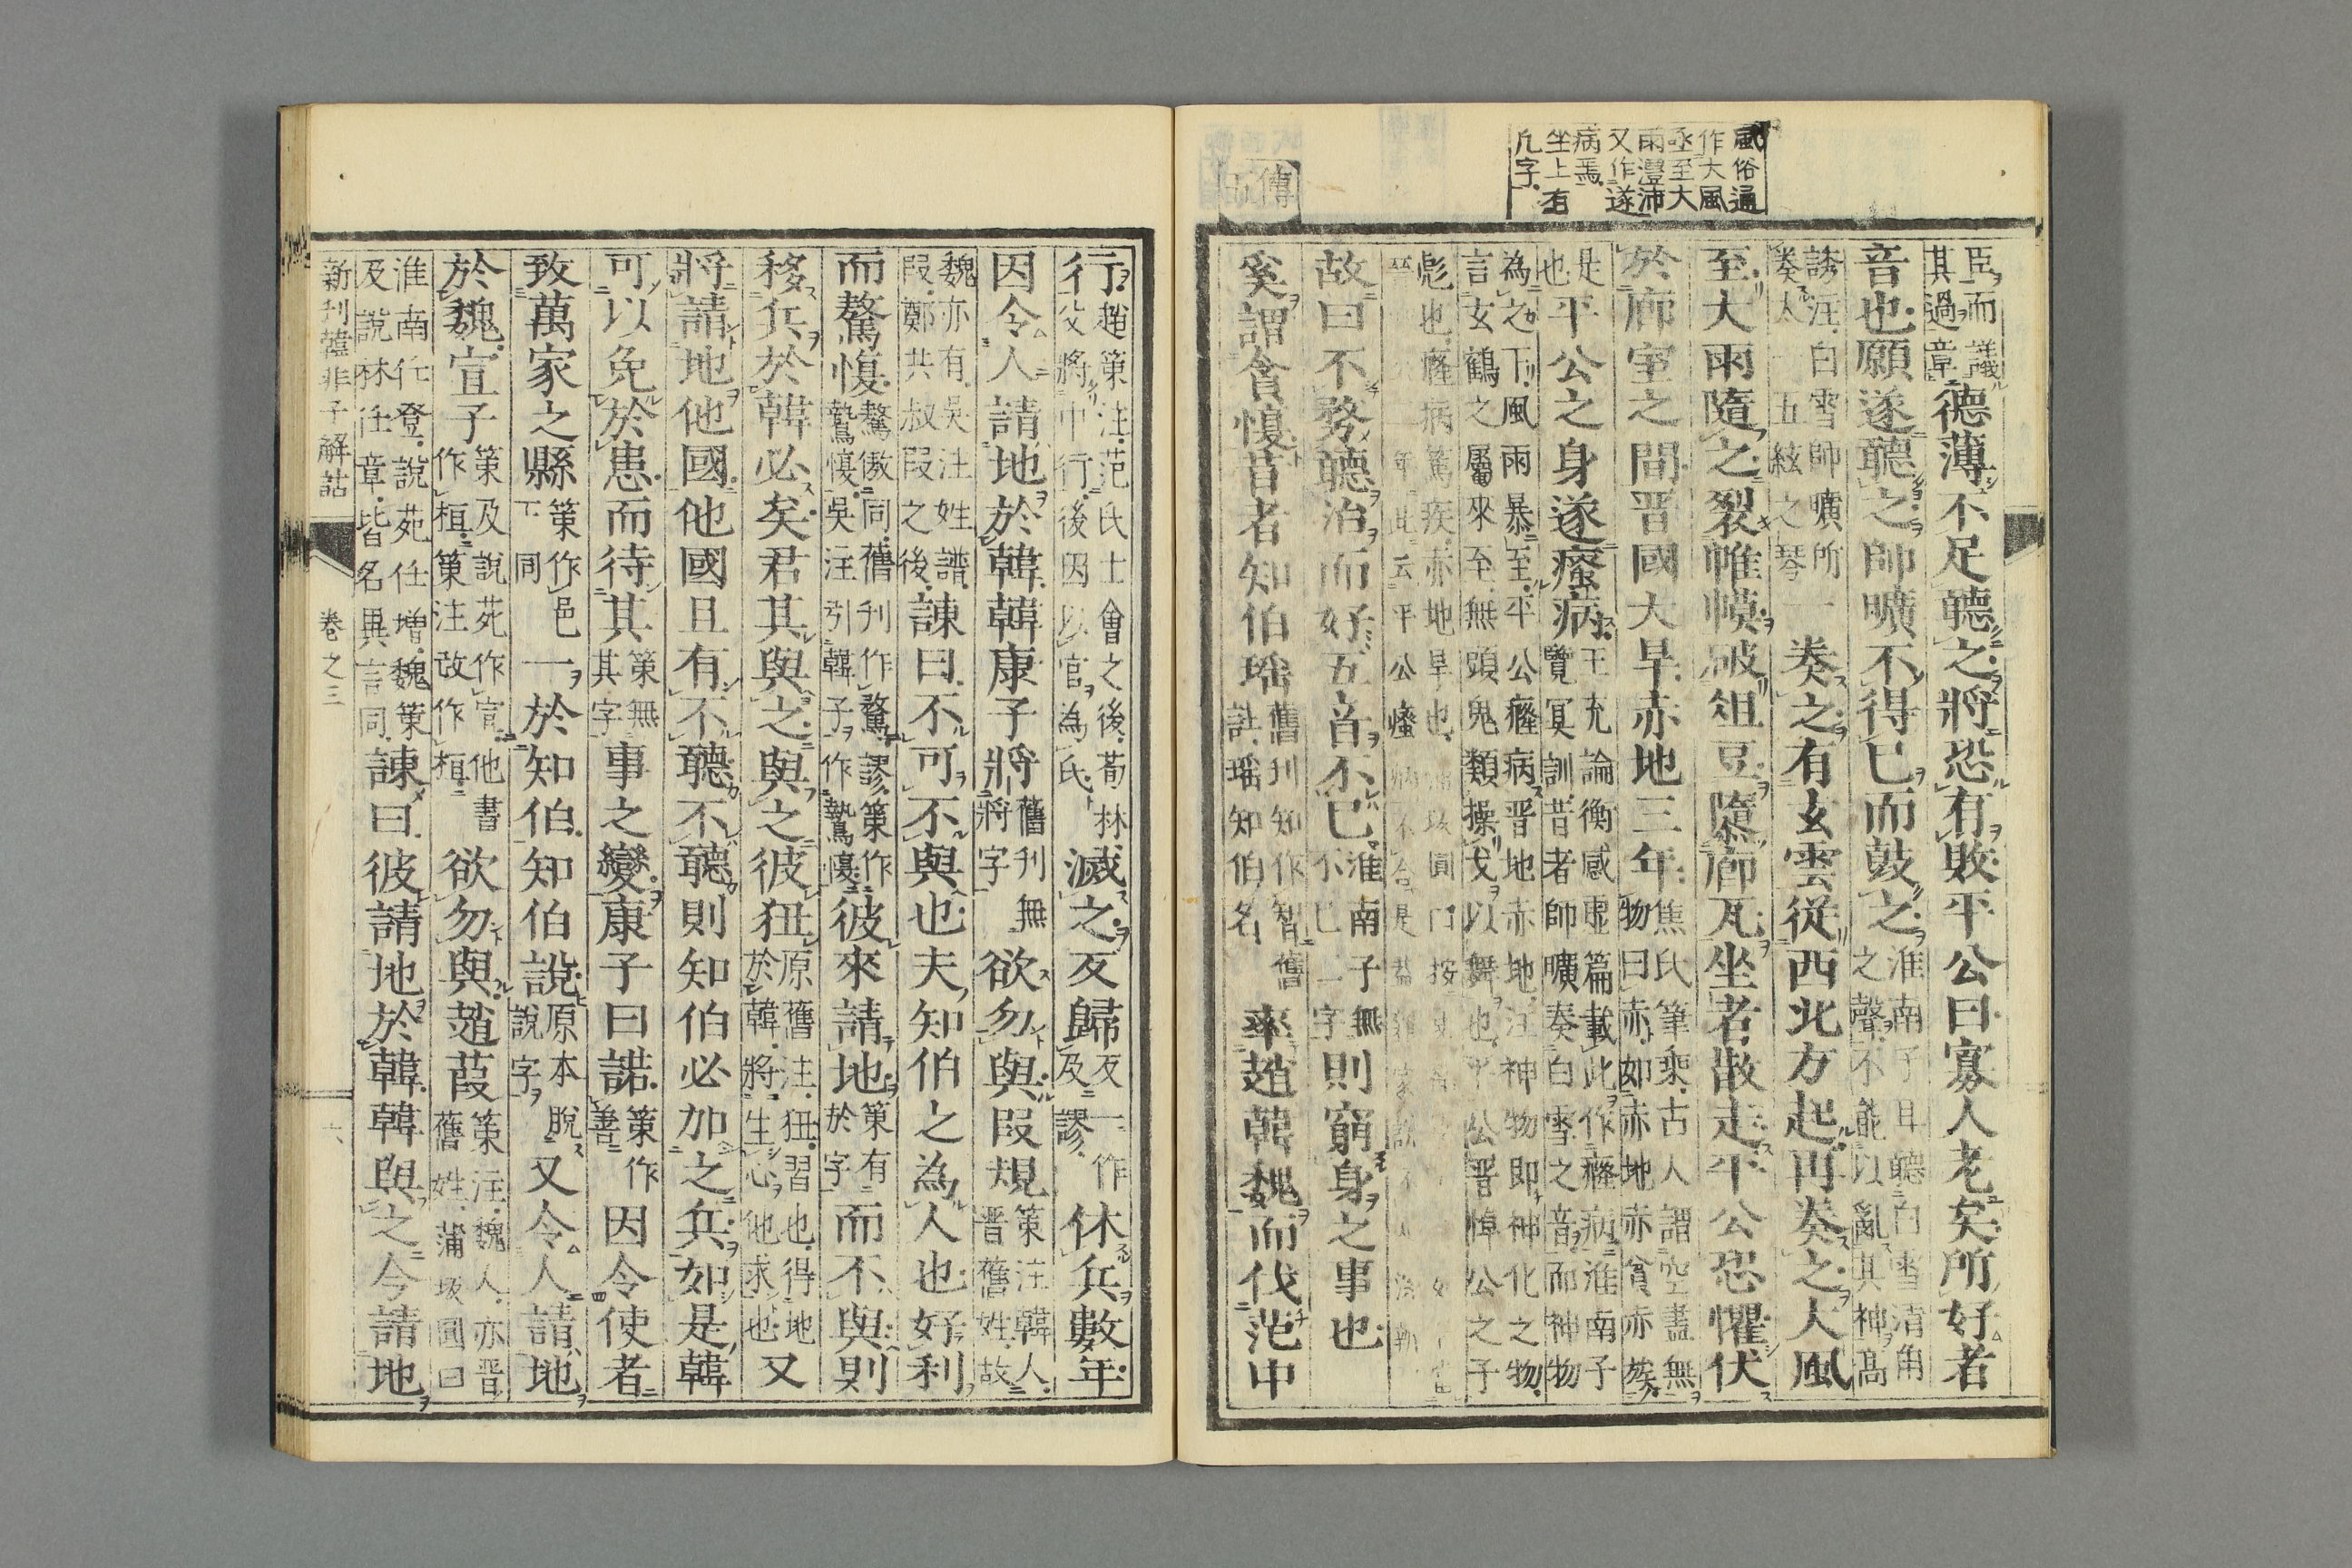 風俗通
作大風
亟至大
雨灃沛
又作遂
病焉
坐上有
几字
臣而議
其過章德薄不足聽之將恐有敗平公曰寡人老矣所好者
音也願遂聽之師曠不得已而鼓之淮南子耳聽白雪清角之聲不能以亂其神高
誘注白雪師曠所奏太一五絃之琴一奏之有玄雲從西北方起再奏之大風
至大雨隨之裂帷幙破俎豆隳廊瓦坐者散走平公恐懼伏
於廊室之間晋國大旱赤地三年焦氏筆乘古人謂空盡無物曰赤如赤地赤貧赤族
是也平公之身遂癃病王充論衡感虛篇載此作癃病淮南子覽冥訓昔者師曠奏白雪之音而神物
為之下風雨暴至平公癃病晋地赤地注神物即神化之物
言玄鶴之屬來至無頭鬼類操戈以舞也平公晋悼公之子
彪也癃病篤疾赤地旱也
故曰不務聽治而好五音不已淮南子無不已二字則窮身之事也
奚謂貪愎昔者知伯瑤舊刊知作智舊註瑤知伯名率趙韓魏而伐范中
行趙策注范氏士會之後荀林父將中行後因以官為氏滅之反歸反一作及謬休兵數年
因令人請地於韓韓康子將舊刊無將字欲勿與叚規策注韓人晋舊姓故
魏亦有吳注姓譜叚鄭共叔叚之後諫曰不可不與也夫知伯之為人也好利
而驁愎驁傲同舊刊作鶩謬策作鷙愎吳注引韓子作鷙愎彼來請地策有於字而不與則
移兵於韓必矣君其與之與之彼狃原舊注狃習也得地於韓將生心他求也又
將請地他國他國且有不聽不聽則知伯必加之兵如是韓
可以免於患而待其策無其字事之變康子曰諾策作善因令使者
致萬家之縣策作邑下同一於知伯知伯說原本脫說字又令人請地
於魏宣子策及說苑作宣他書作桓策注改作桓欲勿與趙葭策注魏人亦晋舊姓蒲坂圓曰
淮南任登說苑任增魏策及說林任章皆名異言同諫曰彼請地於韓韓與之今請地
新刊韓非子解詁
卷之三
六